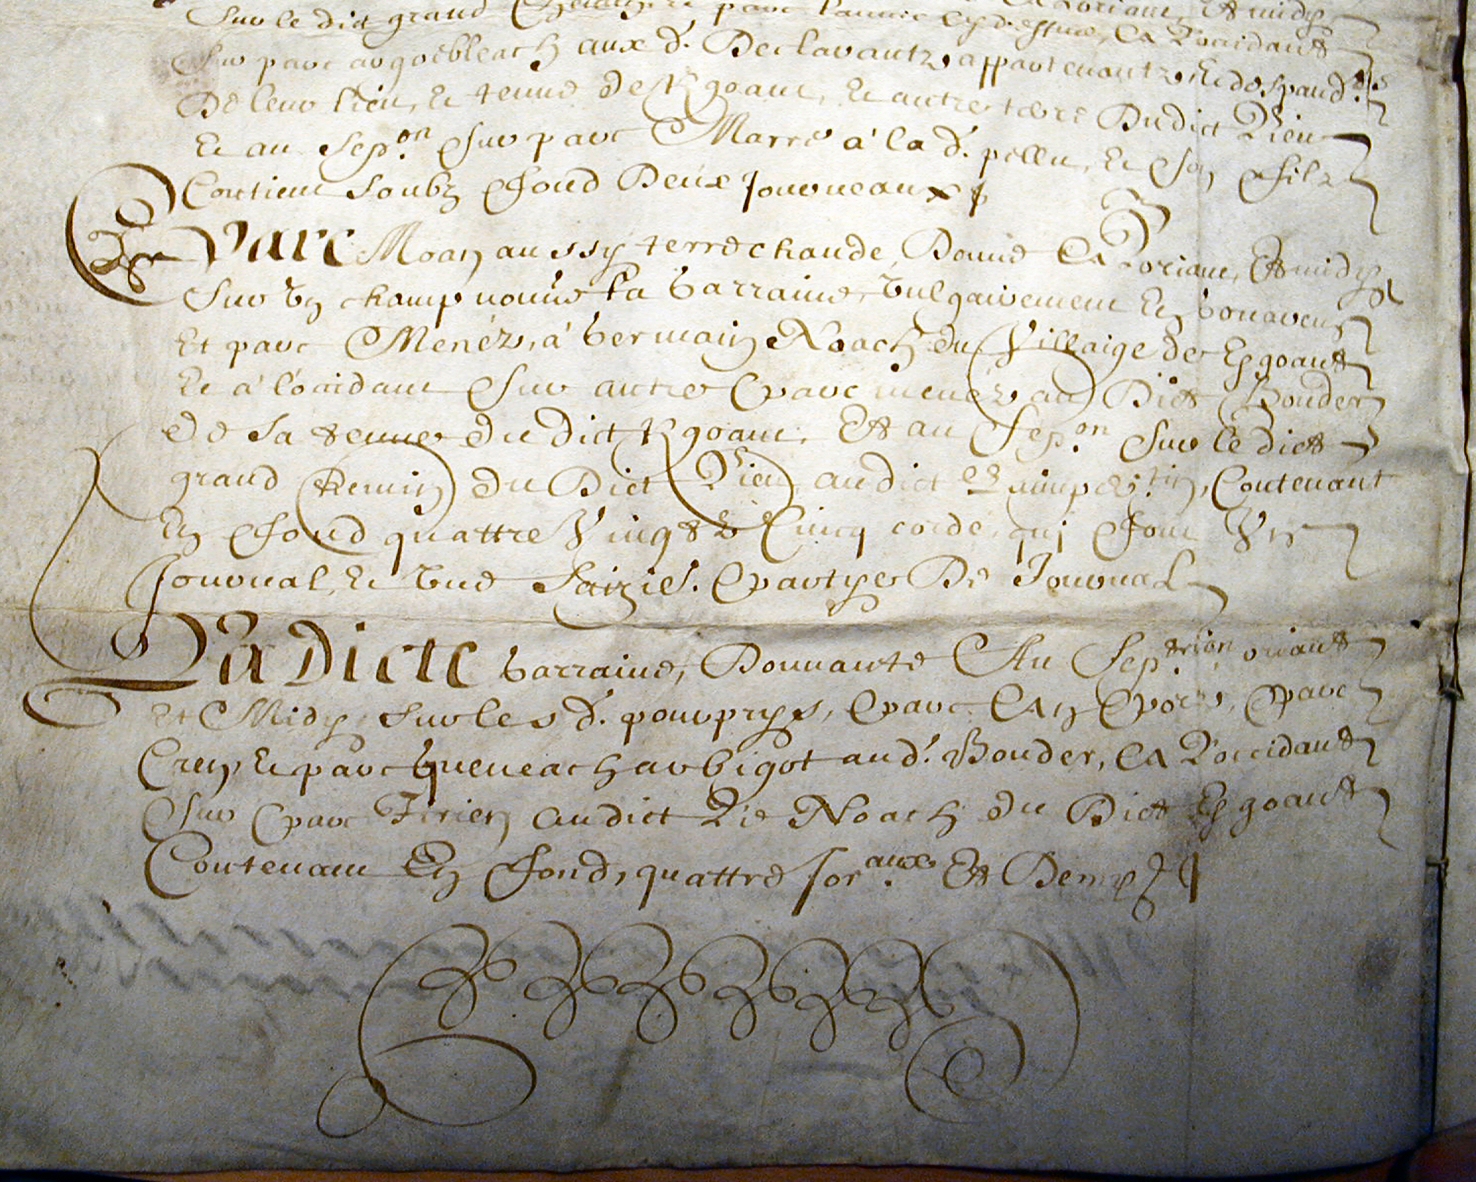 Sur le dict grand
Sur parc argoëbleach aux d. Declarantz appartenantz,
De leur lieu, Et tenue de Kgoant, Et autre terre Dudict Lieu
Et au Sep.on Sur parc Marre à la d. pellu, Et son filz
Contient Soubz fond Deux Journeaux
Parc Moan aussy terre chaude, Donne A L'oriant, Et midy
Sur Un champ nommé La barraine, Vulgairement En bonaven
Et parc Menéz, à Germain Noach du Villaige de Esgoant
Et à l'occidant Sur autre parc menéz au Dict Bouder
De Sa tenue du Dict Kgoant, Et au Sep.on Sur le dict
grand Chemin du Dict Lieu, au dict Contenant
En fond quattre Vingtz Cincq corde, qui font Un
Journal, Et Une Saizies. partye De Journal
La Dicte barraine, Donnante Au Sep.trion oriant
Et Midy, Sur les d. pourprys, parc parc
Creiz Et parc queneach ar bigot au d. Bouder, A L'occidant
Sur parc audict Noach du Dict Esgoant
Contenant En fond, quattre Jor.aux Et Demy